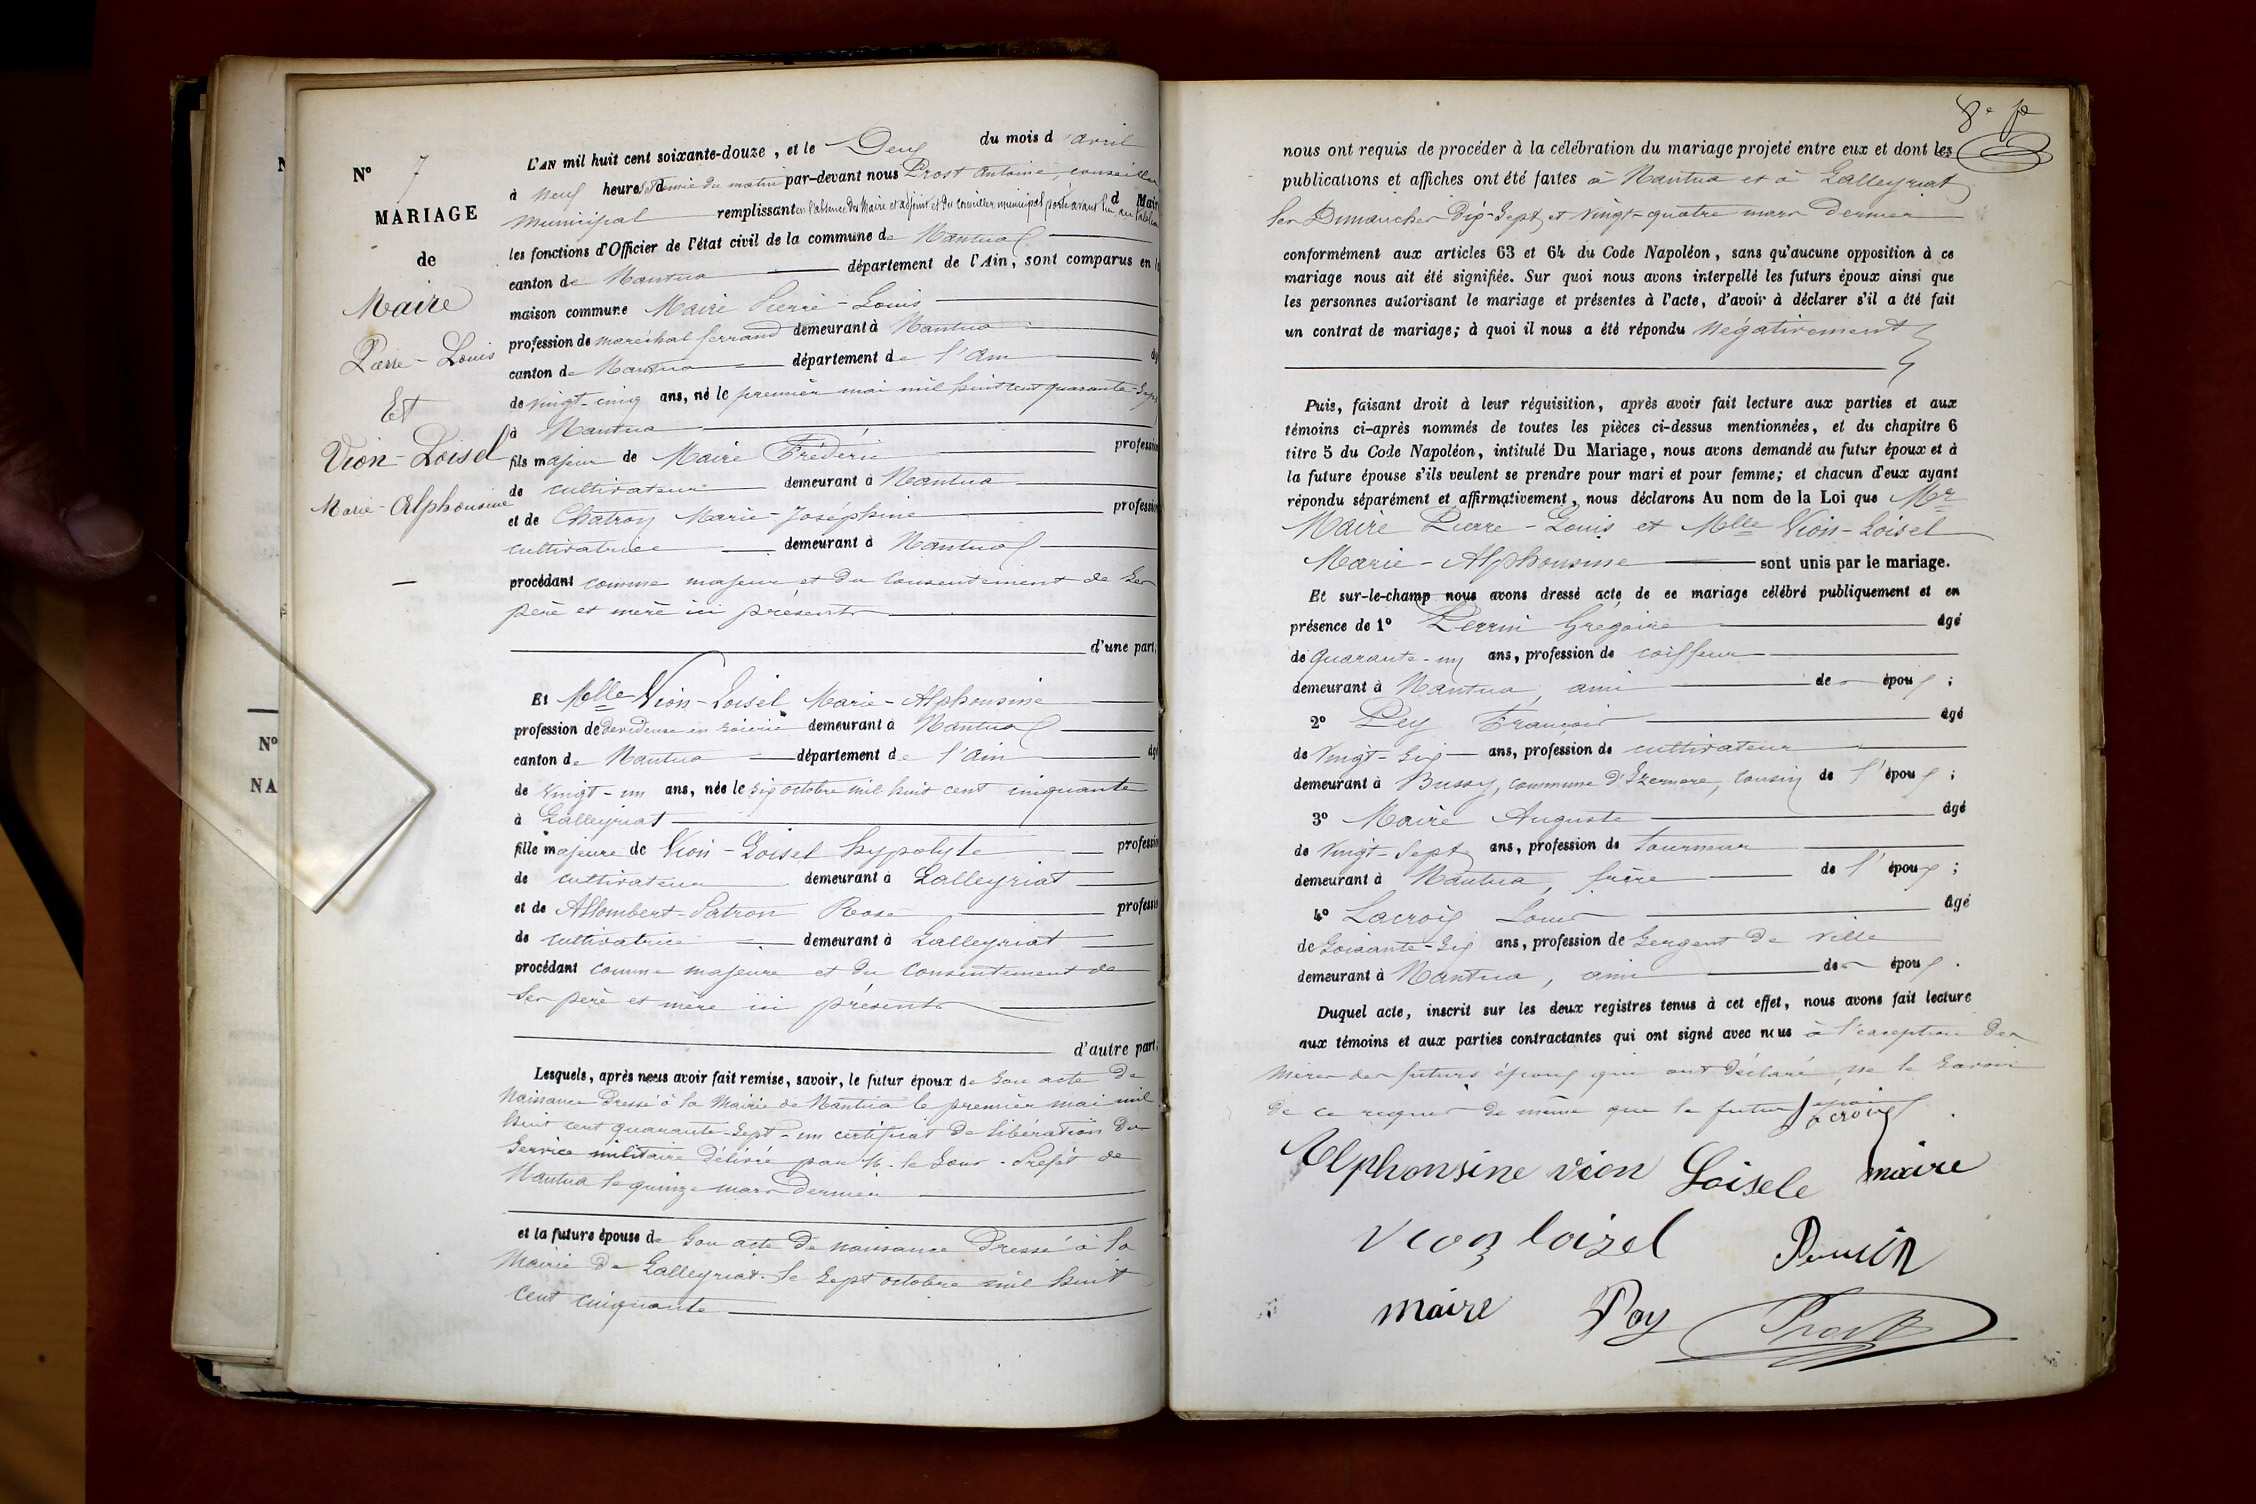 N° 7
MARIAGE
de
Maire
Pierre-Louis
Et
Vion-Loisel
Marie-Alphonsine
L'AN mil huit cent soixante-douze, et le Deux du mois d'avril
à neuf heures et demie du matin par-devant nous Prost Antoine, conseiller
municipal remplissant en l'absence des Maire et adjoint et du conseiller municipal porté avant lui au tableau d Mair
les fonctions d'Officier de l'état civil de la commune de Nantua
canton de Nantua département de l'Ain, sont comparus en la
maison commune Maire Pierre-Louis
profession de maréchal ferrand demeurant à Nantua
canton de Nantua département de l'Ain âgé
de vingt-cinq ans, né le premier mai mil huit cent quarante-sept
à Nantua
fils majeur de Maire Frédéric profession
de cultivateur demeurant à Nantua
et de Chatron Marie-Joséphine profession
cultivatrice demeurant à Nantua
procédant comme majeur et du consentement de ses
père et mère ici présents
d'une part,
Et Melle Vion-Loisel Marie-Alphonsine
profession de devideuse en soierie demeurant à Nantua
canton de Nantua département de l'Ain âgé
de vingt-un ans, née le six octobre mil huit cent cinquante
à Lalleyriat
fille majeure de Vion-Loisel hypolyte profession
de cultivateur demeurant à Lalleyriat
et de Allombert-Patron Rose profession
de cultivatrice demeurant à Lalleyriat
procédant comme majeure et du consentement de
ses père et mère ici présents
d'autre part,
Lesquels, après nous avoir fait remise, savoir, le futur époux de son acte de
naissance dressé à la Mairie de Nantua le premier mai mil
huit cent quarante-sept - un certificat de libération du
service militaire délivré par M. le Sous-Préfet de
Nantua le quinze mars dernier
et la future épouse de son acte de naissance dressé à la
Mairie de Lalleyriat le sept octobre mil huit
cent cinquante
N°
NA
8e
nous ont requis de procéder à la célébration du mariage projeté entre eux et dont les
publications et affiches ont été faites à Nantua et à Lalleyriat
les Dimanches dix-sept et vingt-quatre mars dernier
conformément aux articles 63 et 64 du Code Napoléon, sans qu'aucune opposition à ce
mariage nous ait été signifiée. Sur quoi nous avons interpellé les futurs époux ainsi que
les personnes autorisant le mariage et présentes à l'acte, d'avoir à déclarer s'il a été fait
un contrat de mariage; à quoi il nous a été répondu négativement
Puis, faisant droit à leur réquisition, après avoir fait lecture aux parties et aux
témoins ci-après nommés de toutes les pièces ci-dessus mentionnées, et du chapitre 6
titre 5 du Code Napoléon, intitulé Du Mariage, nous avons demandé au futur époux et à
la future épouse s'ils veulent se prendre pour mari et pour femme; et chacun d'eux ayant
répondu séparément et affirmativement, nous déclarons Au nom de la Loi que Mr
Maire Pierre-Louis et Melle Vion-Loisel
Marie-Alphonsine sont unis par le mariage.
Et sur-le-champ nous avons dressé acte de ce mariage célébré publiquement et en
présence de 1° Perrin Grégoire âgé
de quarante-un ans, profession de coiffeur
demeurant à Nantua, ami de époux;
2° Pey François âgé
de vingt-six ans, profession de cultivateur
demeurant à Bussy, commune d'Izernore, cousin de l'époux;
3° Maire Auguste âgé
de vingt-sept ans, profession de tourneur
demeurant à Nantua, frère de l'époux;
4° Lacroix Louis âgé
de soixante-six ans, profession de sergent de ville
demeurant à Nantua, ami de époux.
Duquel acte, inscrit sur les deux registres tenus à cet effet, nous avons fait lecture
aux témoins et aux parties contractantes qui ont signé avec nous à l'exception des
mères des futurs époux qui ont déclaré ne le savoir
de ce requis de même que le futur époux
Lacroix
Alphonsine vion Loisele maire
vion loisel Perrin
maire Pey Prost